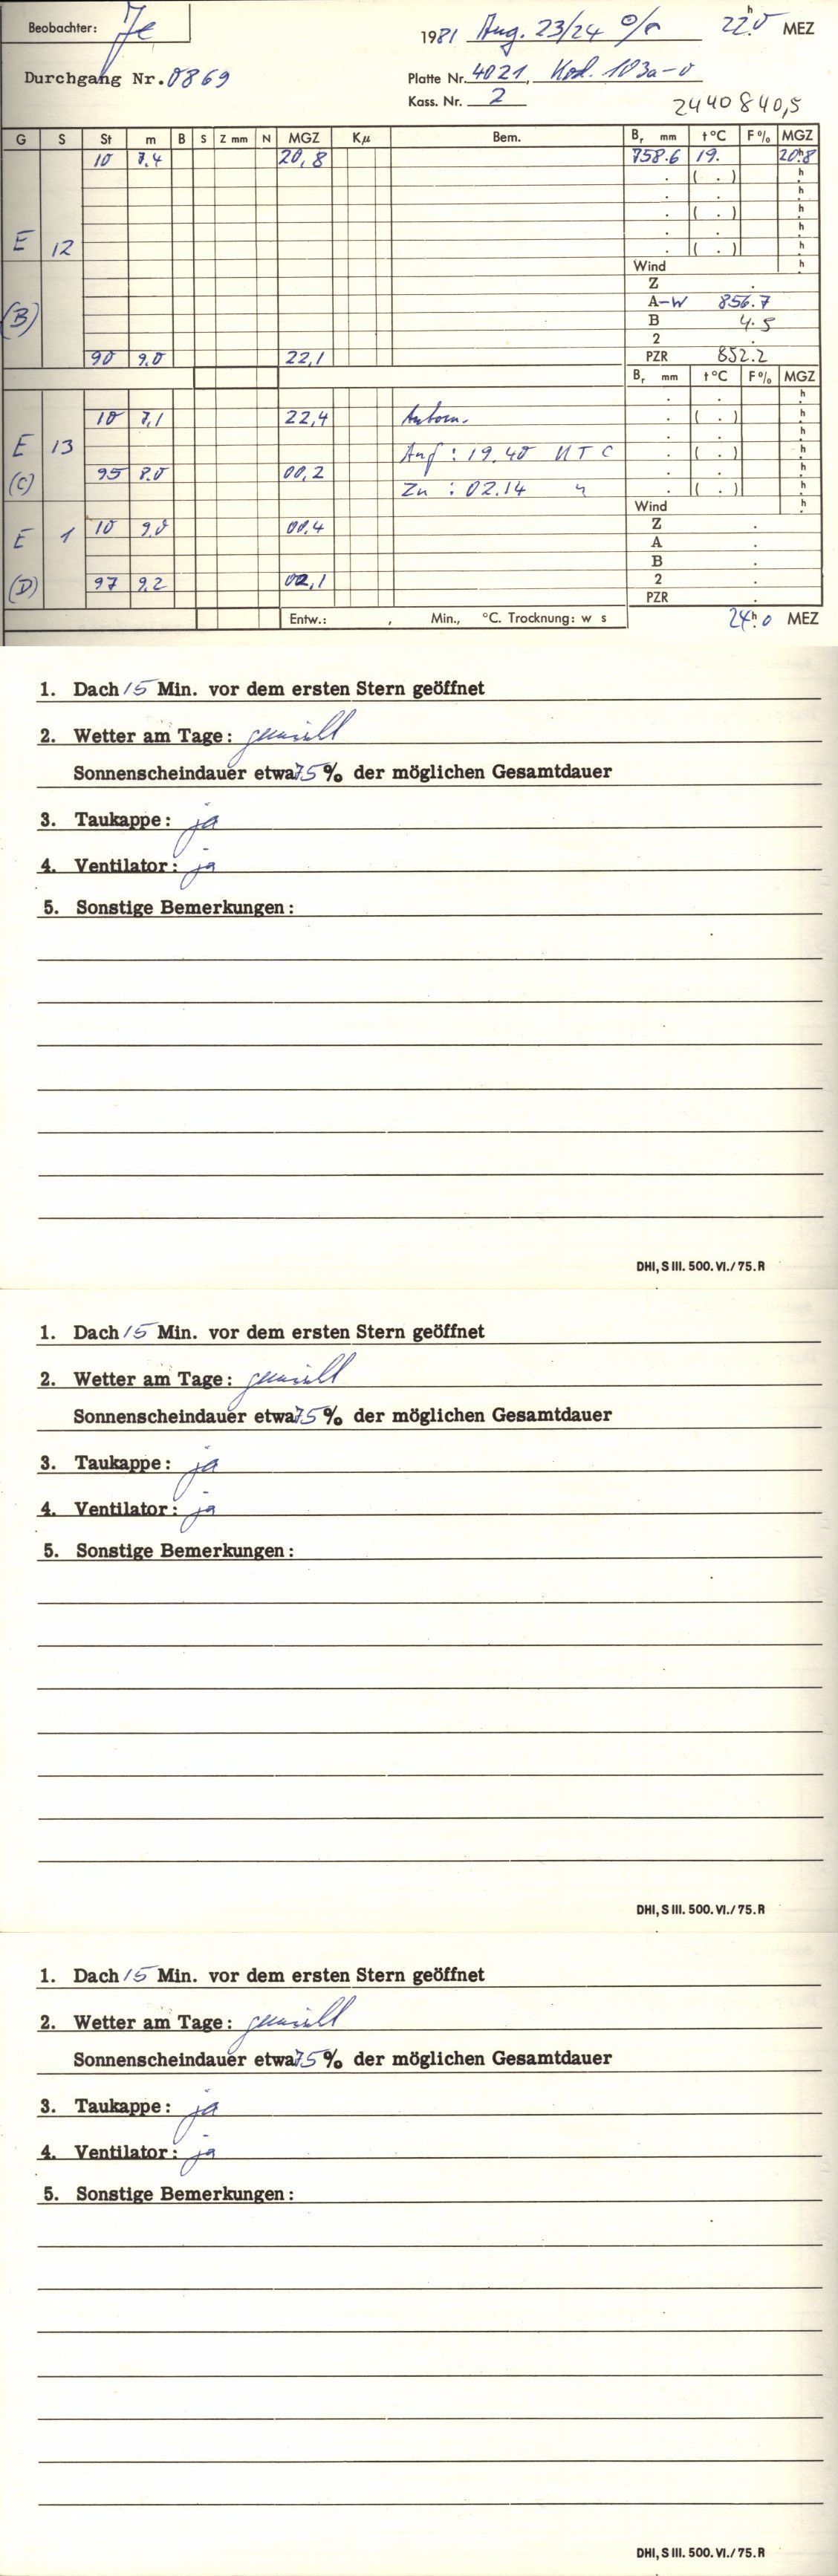 Beobachter: Je
1981 Aug. 23/24 22h0 MEZ
Durchgang Nr. 0869
Platte Nr. 4021, Kod. 103a-0
Kass. Nr. 2
2440840,5
G S St m B S Z mm N MGZ Kμ Bem. Br mm t°C F% MGZ
10 7.4 20,8 758.6 19. 20h8
. ( . ) h
. . h
. ( . ) h
. . h
E 12 . ( . ) h
Wind h
Z .
A-W 856.7
(B) B 4.5
2 .
90 9.0 22,1 PZR 852.2
Br mm t°C F% MGZ
. . h
10 7,1 22,4 Autom. . ( . ) h
. . h
E 13 Auf : 19.40 UTC . ( . ) h
(C) 95 8.0 00,2 . . h
Zu : 02.14 " . ( . ) h
Wind h
E 1 10 9,0 00,4 Z .
A .
B .
(D) 97 9,2 02,1 2 .
PZR .
Entw.: , Min., °C. Trocknung: w s 24h0 MEZ
1. Dach 15 Min. vor dem ersten Stern geöffnet
2. Wetter am Tage:
Sonnenscheindauer etwa 75% der möglichen Gesamtdauer
3. Taukappe: ja
4. Ventilator: ja
5. Sonstige Bemerkungen:
DHI, S III. 500. VI./75. R
1. Dach 15 Min. vor dem ersten Stern geöffnet
2. Wetter am Tage:
Sonnenscheindauer etwa 75% der möglichen Gesamtdauer
3. Taukappe: ja
4. Ventilator: ja
5. Sonstige Bemerkungen:
DHI, S III. 500. VI./75. R
1. Dach 15 Min. vor dem ersten Stern geöffnet
2. Wetter am Tage:
Sonnenscheindauer etwa 75% der möglichen Gesamtdauer
3. Taukappe: ja
4. Ventilator: ja
5. Sonstige Bemerkungen:
DHI, S III. 500. VI./75. R